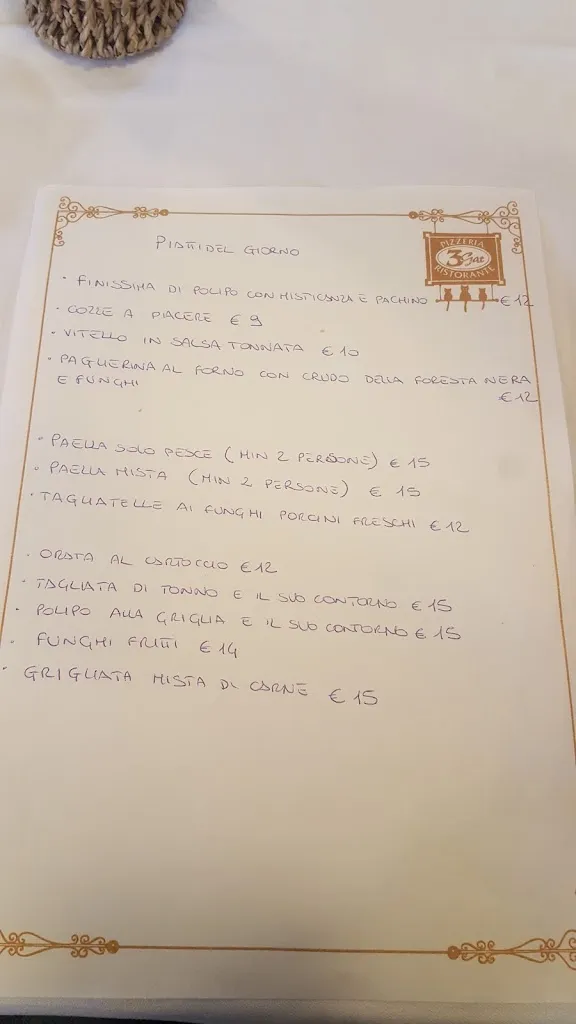 PIATTI DEL GIORNO
PIZZERIA
3Gat
RISTORANTE
· FINISSIMA DI POLIPO CON MISTICANZA E PACHINO €12
· COZZE A PIACERE €9
· VITELLO IN SALSA TONNATA €10
· PAGLIERINA AL FORNO CON CRUDO DELLA FORESTA NERA
E FUNGHI
€12
· PAELLA SOLO PESCE (MIN 2 PERSONE) €15
· PAELLA MISTA (MIN 2 PERSONE) €15
· TAGLIATELLE AI FUNGHI PORCINI FRESCHI €12
· ORATA AL CARTOCCIO €12
· TAGLIATA DI TONNO E IL SUO CONTORNO €15
· POLIPO ALLA GRIGLIA E IL SUO CONTORNO €15
· FUNGHI FRITTI €14
· GRIGLIATA MISTA DI CARNE €15